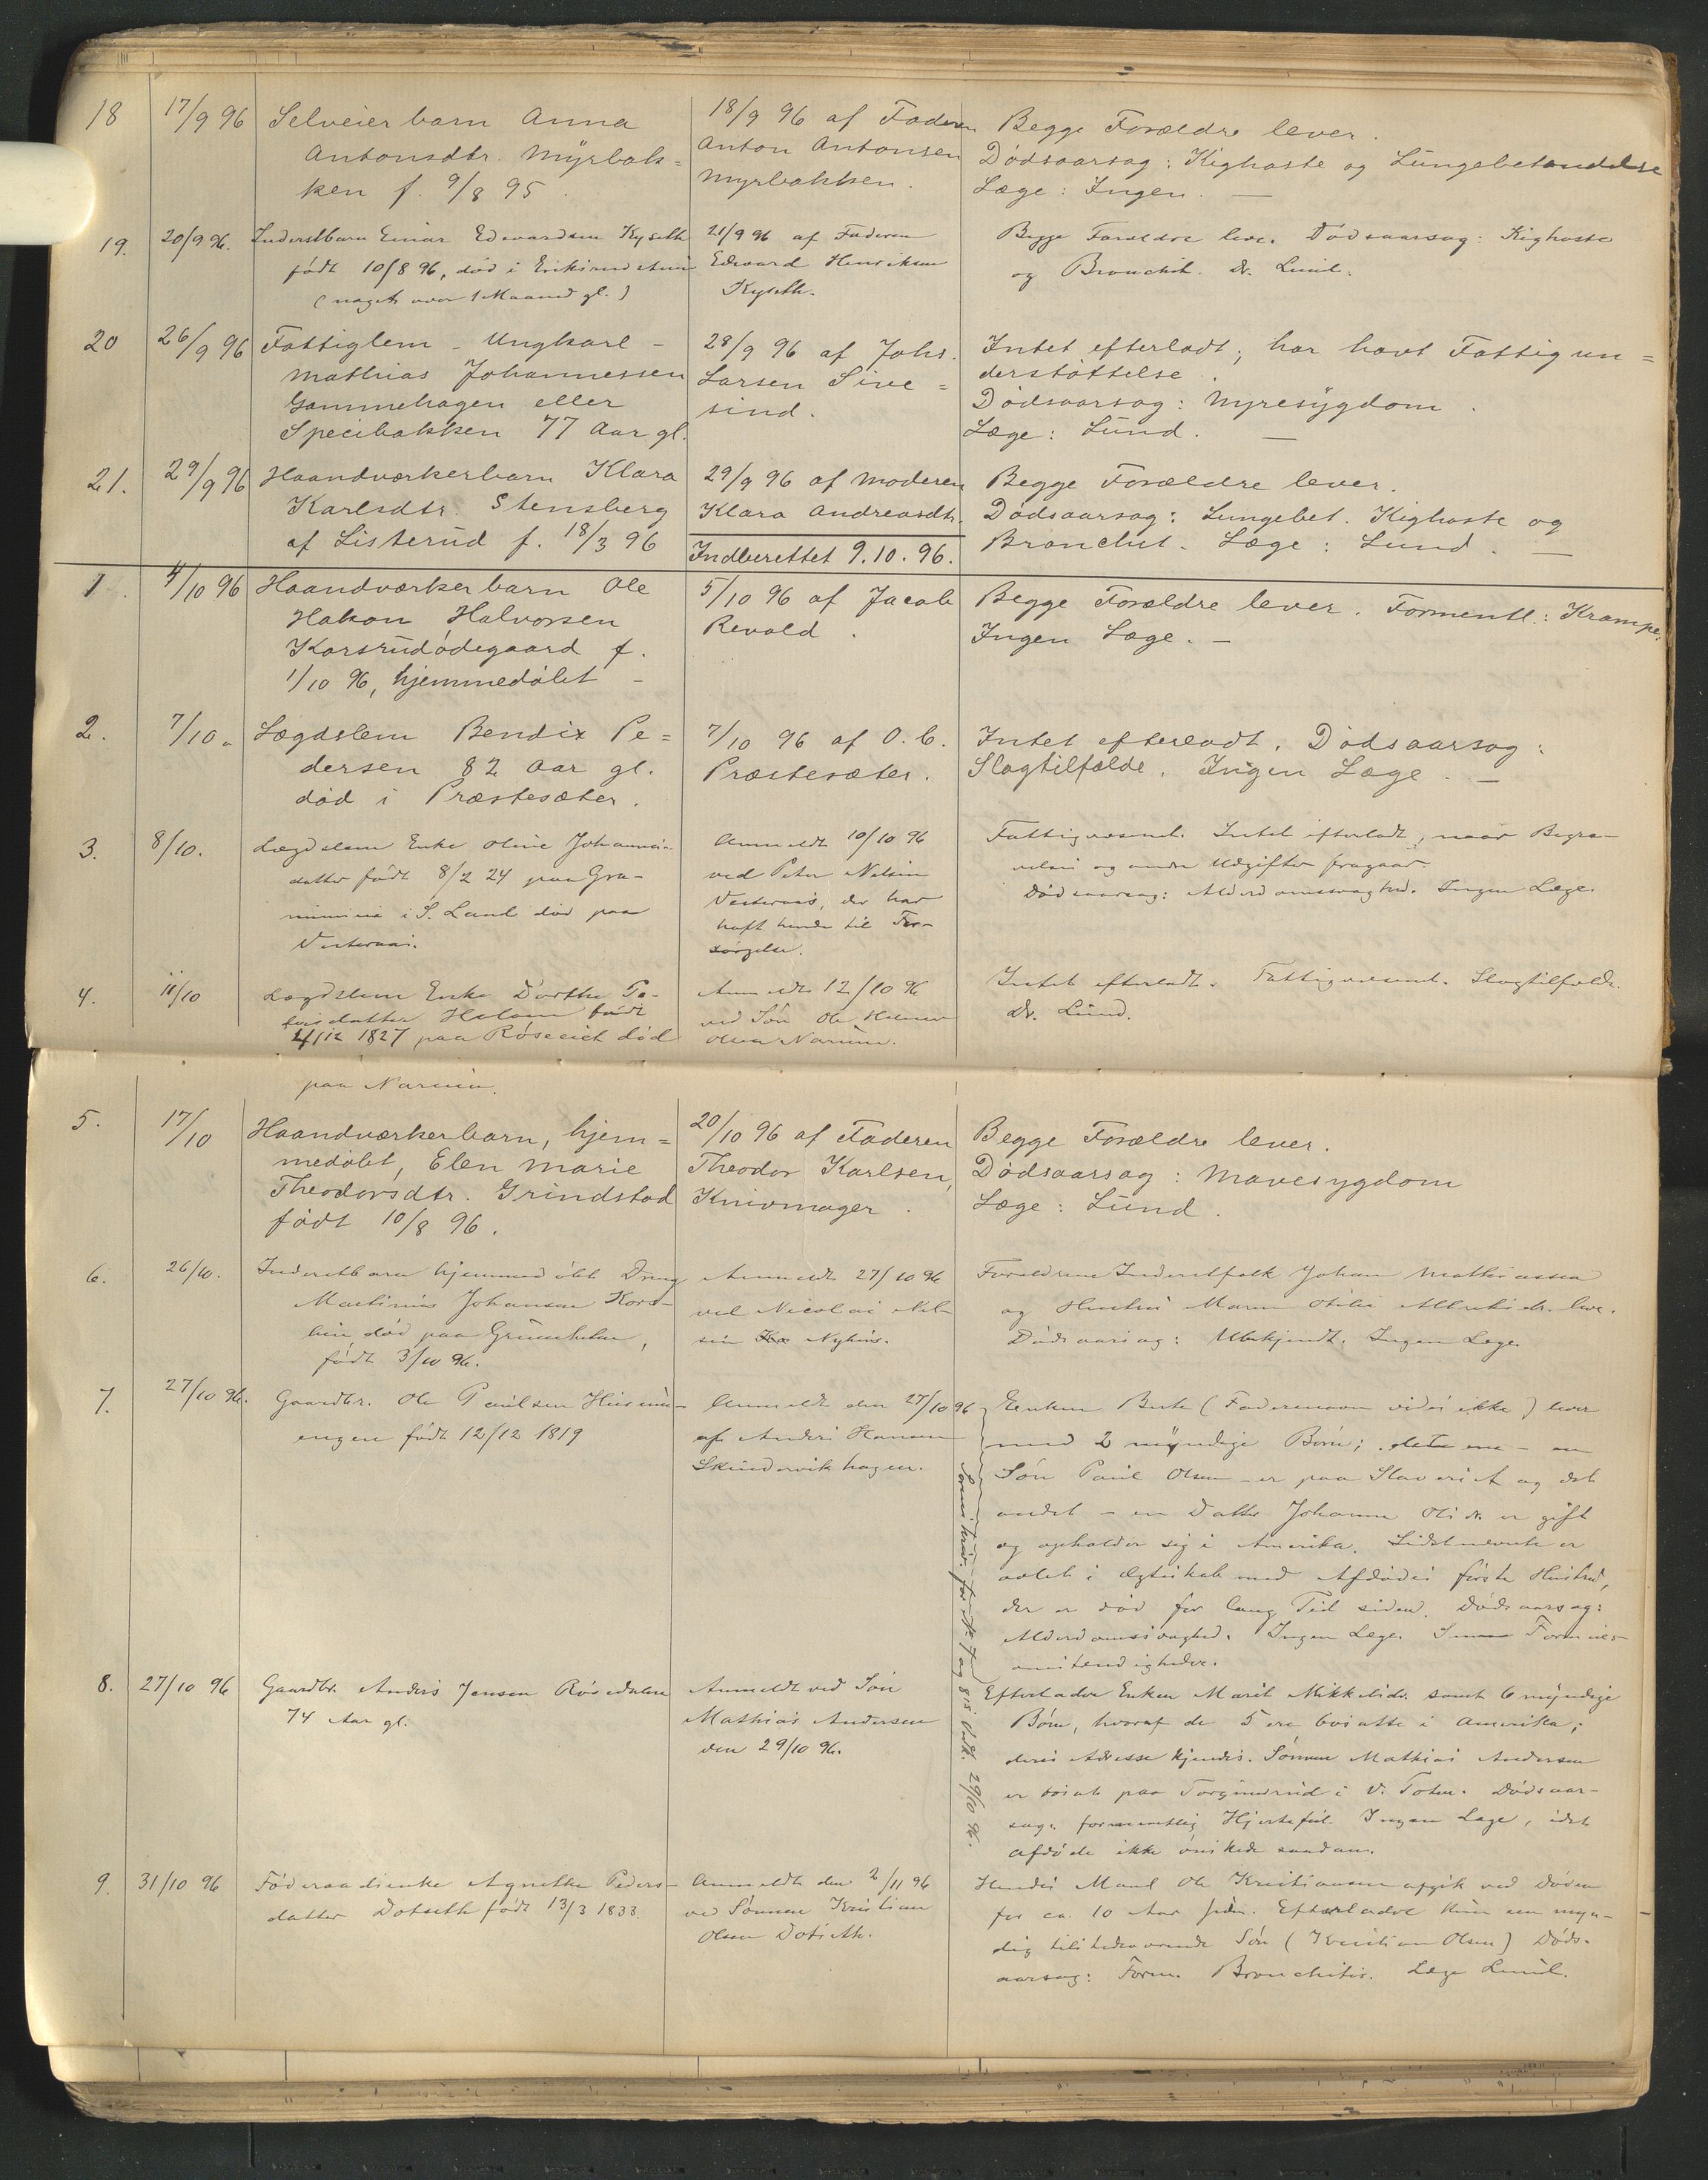 18
17/9 96
Selveierbarn Anna
Antonsdtr. Myrbak=
ken f. 9/8 95.
18/9 96 af Faderen
Anton Antonsen
Myrbakken.
Begge Forældre lever.
Dødsaarsag: Kighoste og Lungebetændelse
Læge: Ingen. —
19.
20/9 96.
Inderstbarn Einar Edvardsen Kyseth
født 10/8 96, død i
(noget over 1 Maaned gl.)
21/9 96 af Faderen
Edvard Henriksen
Kyseth.
Begge Forældre leve. Dødsaarsag: Kighoste
og Bronchit. Dr. Lund.
20
26/9 96
Fattiglem - Ungkarl -
Mathias Johannessen
Gammehagen eller
Specibakken 77 Aar gl.
28/9 96 af Johs.
Larsen Sive=
sind.
Intet efterladt; har havt Fattigun=
derstøttelse.
Dødsaarsag: Nyresygdom.
Læge: Lund. —
21.
29/9 96
Haandværkerbarn Klara
Karlsdtr. Stensberg
af Listerud f. 18/3 96
29/9 96 af Moderen
Klara Andreasdtr.
Indberettet 9.10.96.
Begge Forældre lever.
Dødsaarsag: Lungebet. Kighoste og
Bronchit. Læge: Lund. —
1.
4/10 96
Haandværkerbarn Ole
Hakon Halvorsen
Korsrudødegaard f.
1/10 96, hjemmedøbt -
5/10 96 af Jacob
Revold.
Begge Forældre lever. Formentl.: Krampe.
Ingen Læge. —
2.
7/10 "
Lægdslem Bendix Pe=
dersen 82 Aar gl.
død i Præstesæter.
7/10 96 af O. C.
Præstesæter.
Intet efterladt. Dødsaarsag:
Slagtilfælde. Ingen Læge. —
3.
8/10.
Lægdslem Enke Oline Johannes-
datter født 8/2 24 paa Gra-
i S. Land død paa
Vesteraas.
Anmeldt 10/10 96
ved Peter Nilsen
Vesteraas, der har
haft hende til For-
sørgelse.
Fattigvæsnet. Intet efterladt, naar Begra-
velsen og andre Udgifter fragaar.
Dødsaarsag: Alderdomssvaghed. Ingen Læge.
4.
11/10
Lægdslem Enke Dorthe To-
datter født
4/12 1827 paa død
paa Narum.
Anmeldt 12/10 96
ved Søn Ole
Olsen Narum.
Intet efterladt. Fattigvæsnet. Slagtilfælde.
Dr. Lund.
5.
17/10
Haandværkerbarn, hjem=
medøbt, Elen Marie
Theodorsdtr. Grindstad
født 10/8 96.
20/10 96 af Faderen
Theodor Karlsen,
Knivmager.
Begge Forældre lever.
Dødsaarsag: Mavesygdom
Læge: Lund.
6.
26/10.
Inderstbarn hjemmedøbt Dreng
Martinius Johansen
død paa
født 3/10 96.
Anmeldt 27/10 96
ved Nicolai Nil-
sen Nyhus.
Forældrene Inderstfolk Johan Mathiassen
og Hustru Maren Otilie leve.
Dødsaarsag: Ubekjendt. Ingen Læge
7.
27/10 96.
Gaardbr. Ole Paulsen
engen født 12/12 1819
Anmeldt den 27/10 96
af Anders Hansen
Skindervikhagen.
Enken Berte (Fadernavn vides ikke) lever
med 2 myndige Børn; det ene - en
Søn Paul Olsen - er paa Slaveriet og det
andet - en Datter Johanne Olsdr. er gift
og opholder sig i Amerika. Sidstnævnte er
avlet i Ægteskab med Afdødes første Hustru,
der er død for lang Tid siden. Dødsaarsag:
Alderdomssvaghed. Ingen Læge. Formues-
omstendigheder.
29/10 96.
8.
27/10 96
Gaardbr. Anders Jensen Rosedalen
74 Aar gl.
Anmeldt ved Søn
Mathias Andersen
den 29/10 96.
Efterlader Enken Marit Mikkelsdr. samt 6 myndige
Børn, hvoraf de 5 ere bosatte i Amerika;
deres Adresse kjendes. Sønnen Mathias Andersen
er bosat paa i V. Toten. Dødsaar-
sag: formentlig Hjertefeil. Ingen Læge, idet
afdøde ikke ønskede saadan.
9.
31/10 96
Føderaadsenke Agnethe Peders-
datter Dotseth født 13/3 1833.
Anmeldt den 2/11 96
ved Sønnen Kristian
Olsen Dotseth.
Hendes Mand Ole Kristiansen afgik ved Døden
for ca. 10 Aar siden. Efterlader kun en myn-
dig tilstedeværende Søn (Kristian Olsen) Døds-
aarsag: Form. Bronchitis. Læge Lund.